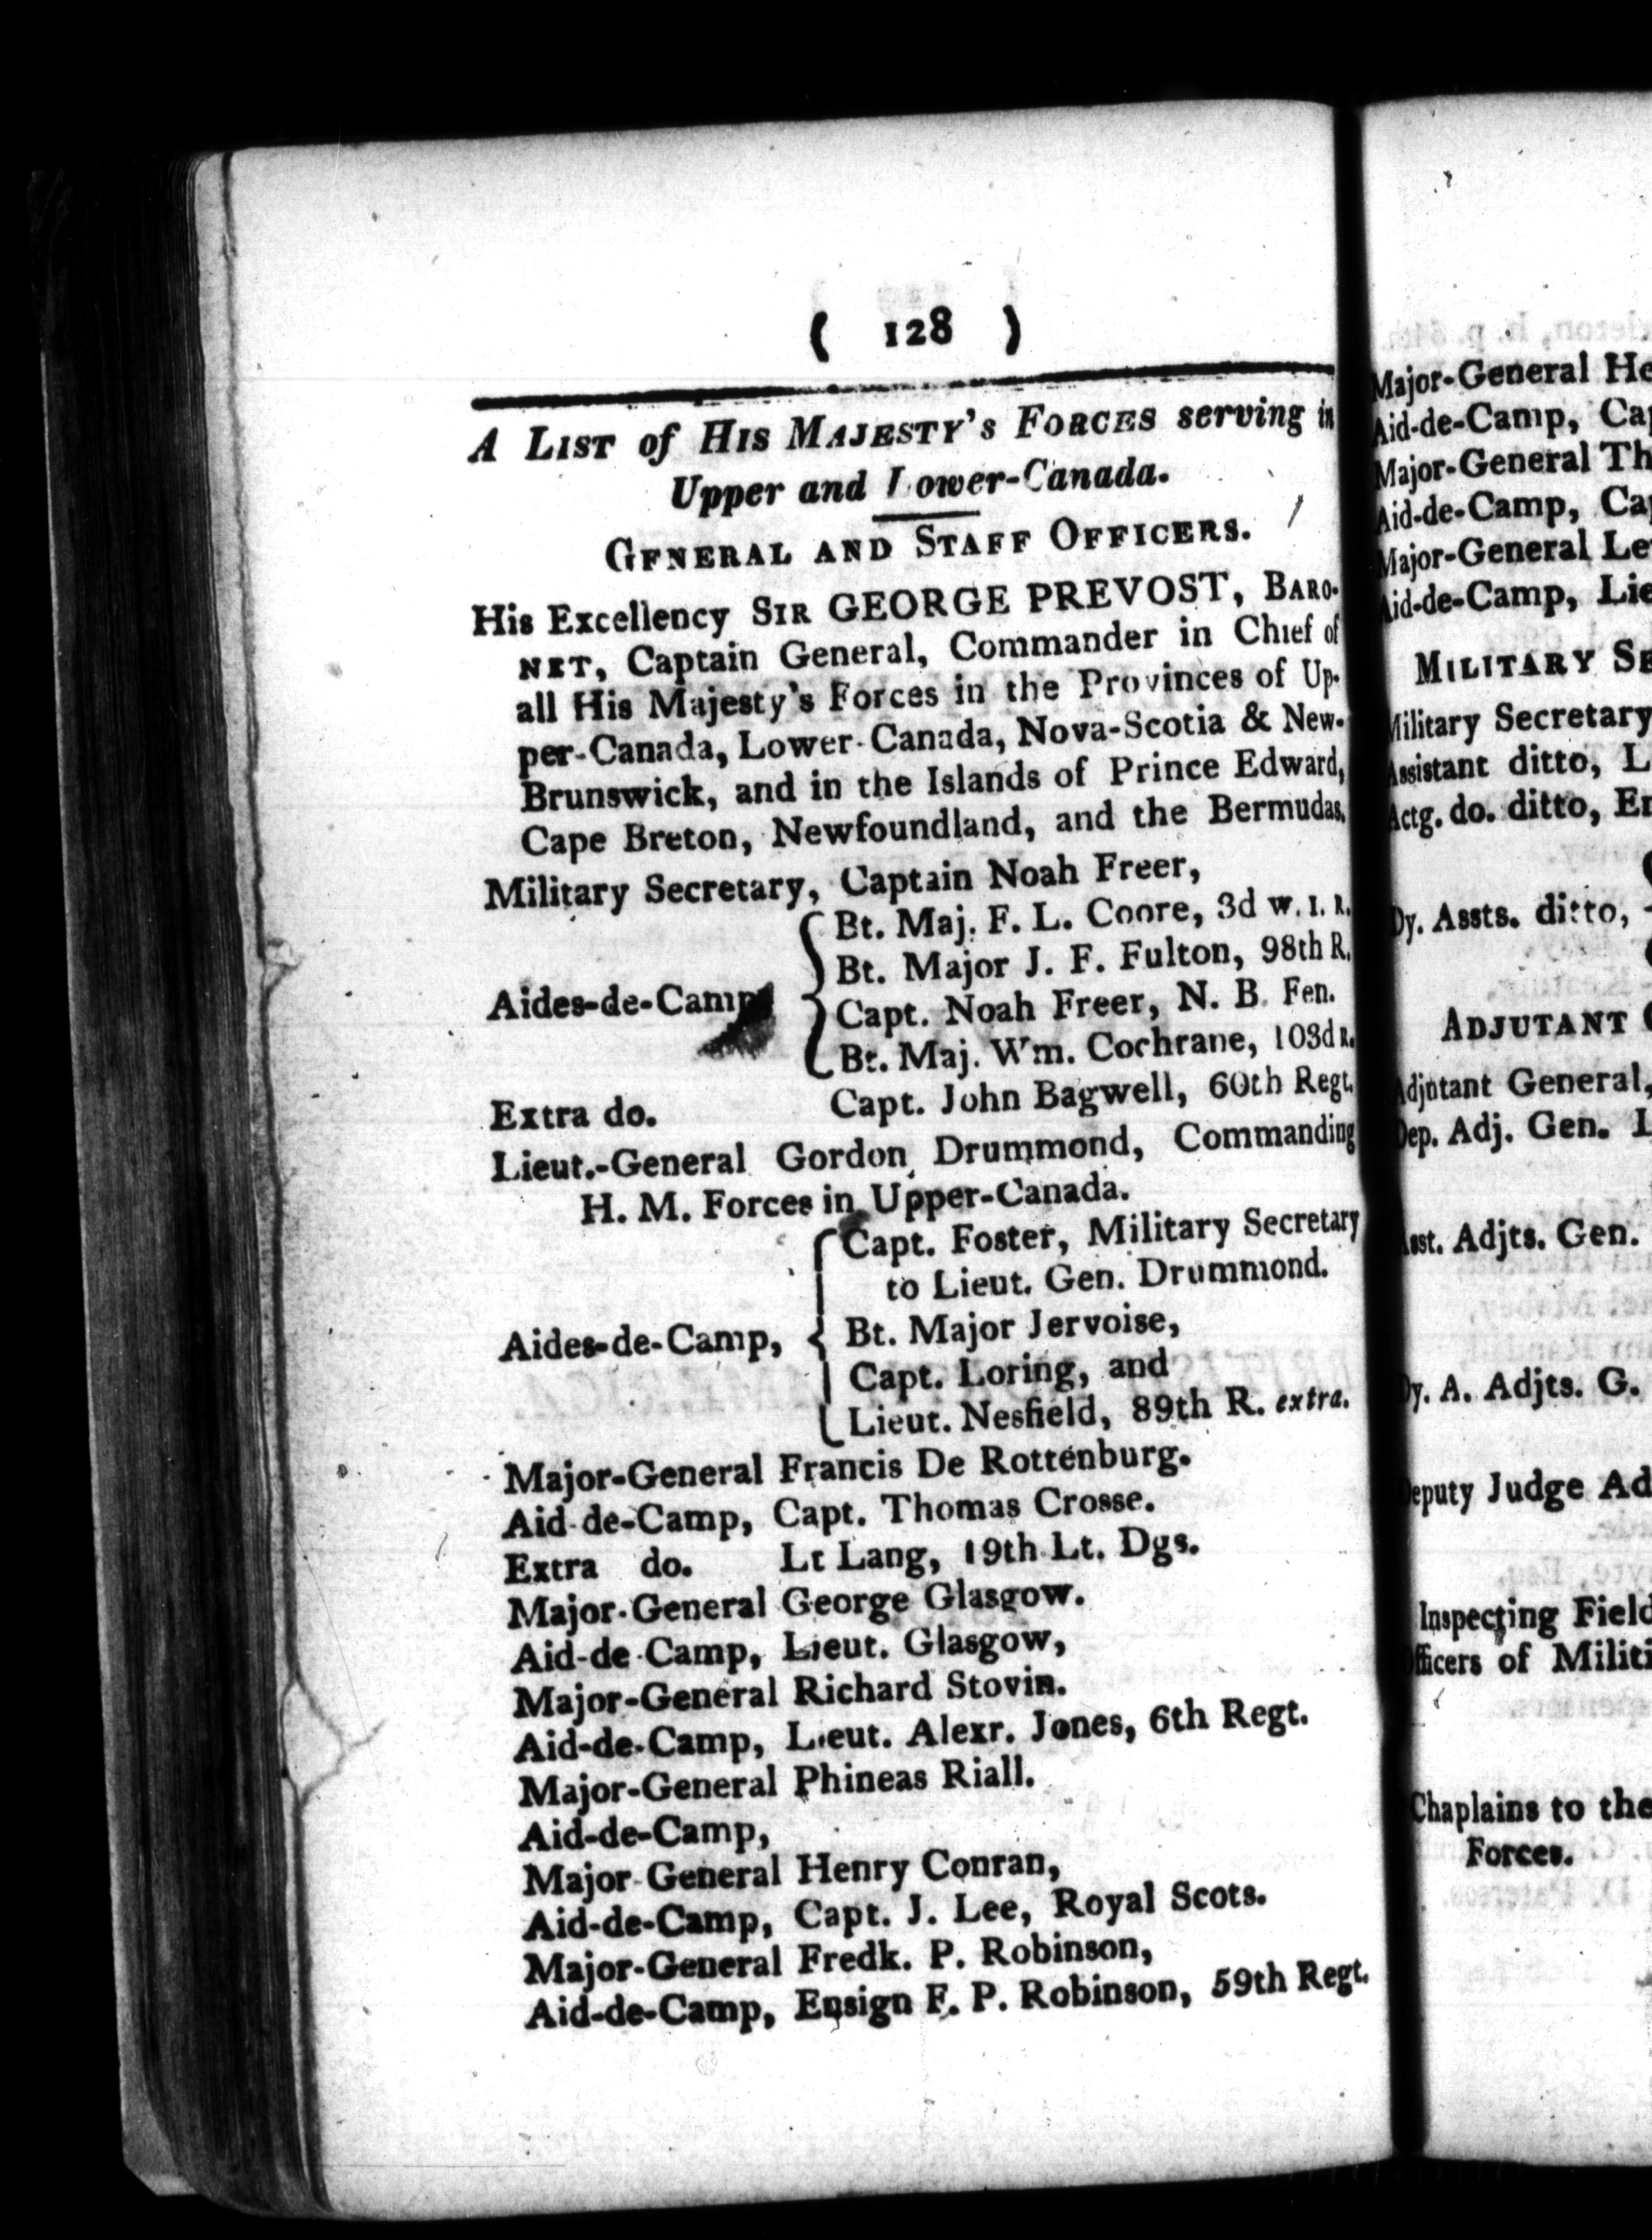 ( 128 )
A LIST of HIS MAJESTY's FORCES serving in
Upper and Lower-Canada.
GENERAL AND STAFF OFFICERS.
His Excellency SIR GEORGE PREVOST, BARO-
NET, Captain General, Commander in Chief of
all His Majesty's Forces in the Provinces of Up-
per-Canada, Lower-Canada, Nova-Scotia & New-
Brunswick, and in the Islands of Prince Edward,
Cape Breton, Newfoundland, and the Bermudas.
Military Secretary, Captain Noah Freer,
Bt. Maj. F. L. Coore, 3d W. I. R.
Bt. Major J. F. Fulton, 98th R.
Aides-de-Camp
Capt. Noah Freer, N. B. Fen.
Bt. Maj. Wm. Cochrane, 103d R.
Extra do. Capt. John Bagwell, 60th Regt.
Lieut.-General Gordon Drummond, Commanding
H. M. Forces in Upper-Canada.
Capt. Foster, Military Secretary
to Lieut. Gen. Drummond.
Aides-de-Camp, Bt. Major Jervoise,
Capt. Loring, and
Lieut. Nesfield, 89th R. extra.
Major-General Francis De Rottenburg.
Aid-de-Camp, Capt. Thomas Crosse.
Extra do. Lt Lang, 19th Lt. Dgs.
Major-General George Glasgow.
Aid-de-Camp, Lieut. Glasgow,
Major-General Richard Stovin.
Aid-de-Camp, Lieut. Alexr. Jones, 6th Regt.
Major-General Phineas Riall.
Aid-de-Camp,
Major-General Henry Conran,
Aid-de-Camp, Capt. J. Lee, Royal Scots.
Major-General Fredk. P. Robinson,
Aid-de-Camp, Ensign F. P. Robinson, 59th Regt.
Major-General He
Aid-de-Camp, Cap
Major-General Th
Aid-de-Camp, Cap
Major-General Le
Aid-de-Camp, Lie
MILITARY SE
Military Secretary
Assistant ditto, L
Actg. do. ditto, En
Dy. Assts. ditto,
ADJUTANT G
Adjutant General,
Dep. Adj. Gen. L
Asst. Adjts. Gen.
Dy. A. Adjts. G.
Deputy Judge Ad
Inspecting Field
Officers of Militi
Chaplains to the
Forces.